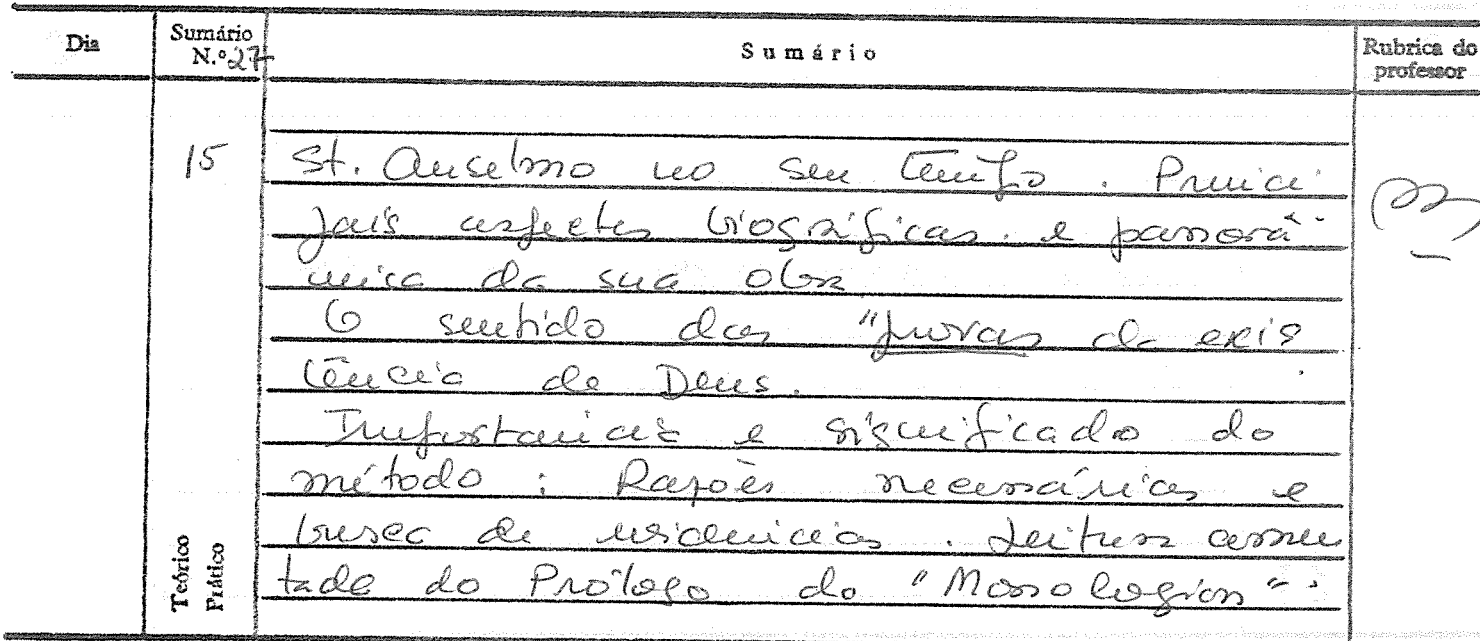 Dia Sumário N.º 27 Sumário Rubrica do professor
15 St. Anselmo no seu tempo. Princi
pais aspectos biográficos e panorâ
mica da sua obra
O sentido das "provas da exis
tência de Deus.
Importância e significado do
método: Razões necessárias e
busca de evidências. Leitura comen
tada do Prólogo do "Monologion".
Teórico
Prático